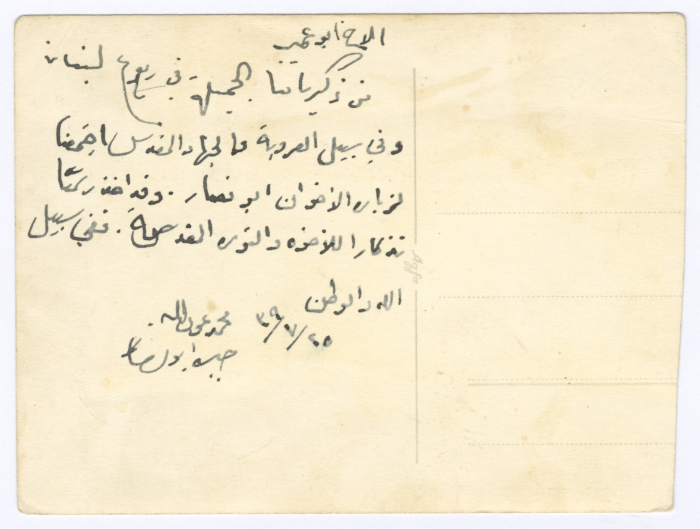 الاخ ابو عمر
من ذكرياتنا الجميلة في ربوع لبنان
وفي سبيل العروبة والجهاد المقدس اجتمعنا
لزيارة الاخوان ابو نصار. وقد اخذ رسمنا
تذكارا للاخوة والثورة القدسية. ففي سبيل
الله والوطن
٢٥/٧/٣٩ محمد عبدالله